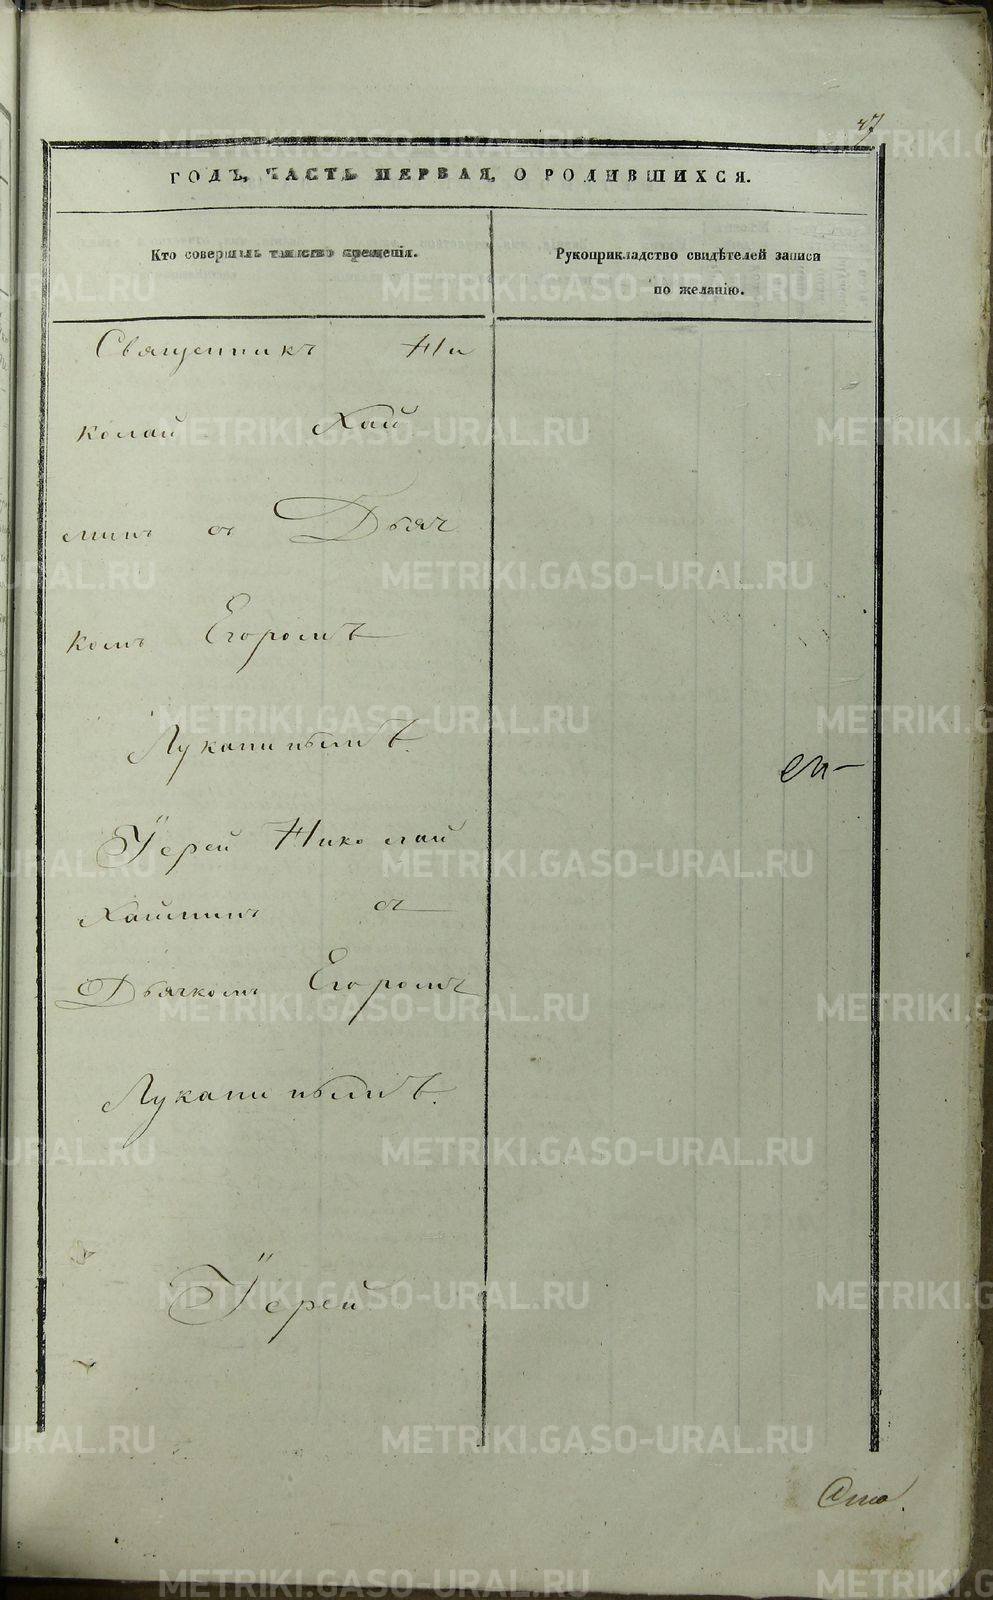 47
ГОДЪ, ЧАСТЬ ПЕРВАЯ, О РОДИВШИХСЯ.
Кто совершалъ таинство крещенія.
Рукоприкладство свидѣтелей записи
по желанію.
Священникъ Ни
колай Хай
минъ съ Дьяч
комъ Егоромъ
Лукинымъ
Іерей Николай
Хайминъ съ
Дьячкомъ Егоромъ
Лукинымъ.
Іерей
METRIKI.GASO-URAL.RU